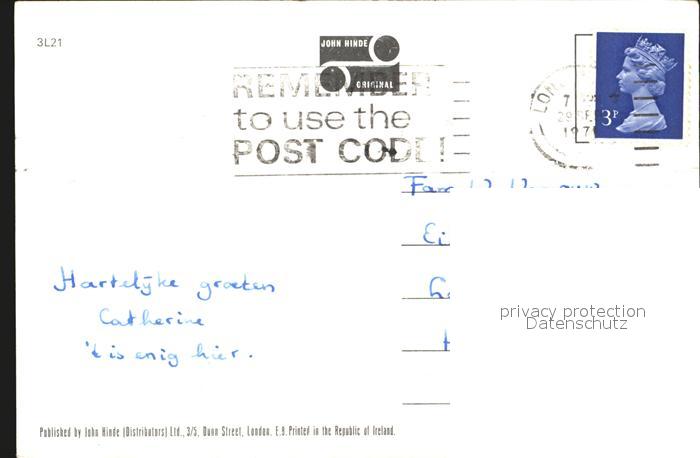 3L21
JOHN HINDE
ORIGINAL
REMEMBER
to use the
POST CODE!
LON
29 SE
197
3P
Fam
Ei
Hartelijke groeten
Catherine
't is enig hier.
privacy protection
Datenschutz
Published by John Hinde (Distributors) Ltd., 3/5, Dunn Street, London. E.9. Printed in the Republic of Ireland.